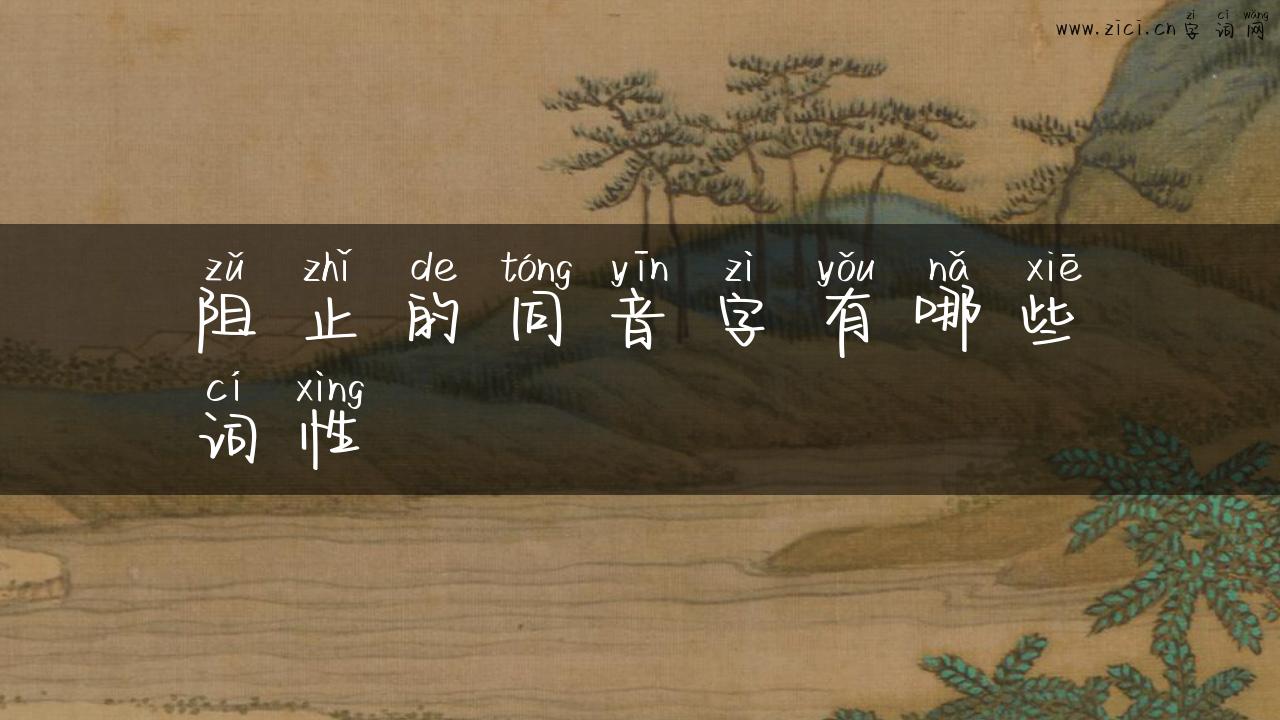 zì cí wǎng
www.zici.cn 字词网
zǔ zhǐ de tóng yīn zì yǒu nǎ xiē
阻止的同音字有哪些
cí xìng
词性